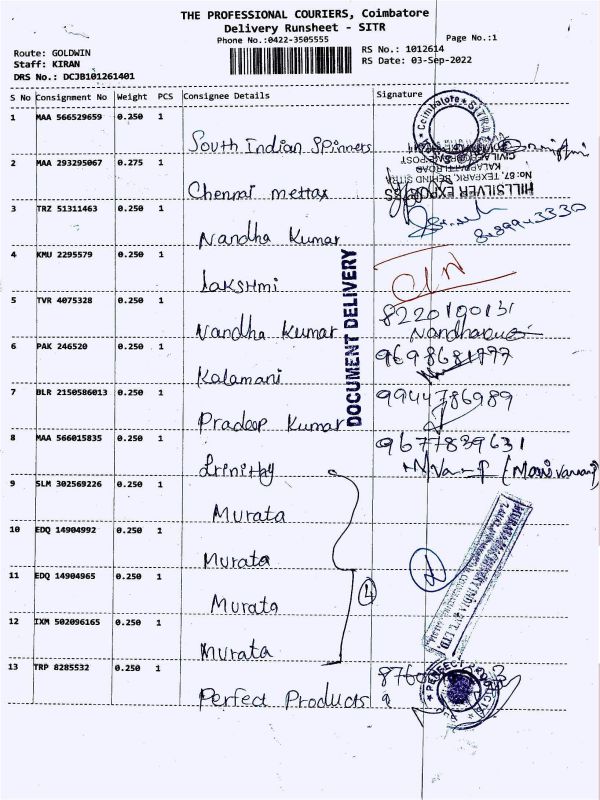 THE PROFESSIONAL COURIERS, Coimbatore
Delivery Runsheet - SITR
Phone No.:0422-3505555
Page No.:1
Route: GOLDWIN
RS No.: 1012614
Staff: KIRAN
RS Date: 03-Sep-2022
DRS No.: DCJB101261401
S No Consignment No Weight PCS Consignee Details Signature
1 MAA 566529659 0.250 1
South Indian Spinners
Coimbatore SITRA
2 MAA 293295067 0.275 1
Chennai mettax
HILLSILVER EXPORTS
No: 67, TEXPARK, BEHIND SITRA
KALAPATTI ROAD
CIVIL AERODROME POST
3 TRZ 51311463 0.250 1
Nandha Kumar
4 KMU 2295579 0.250 1
Lakshmi
5 TVR 4075328 0.250 1
Nandha Kumar
DOCUMENT DELIVERY
6 PAK 246520 0.250 1
9698681777
Kalamani
7 BLR 2150586013 0.250 1
9944786989
Pradeep Kumar
8 MAA 566015835 0.250 1
9677839631
(Manivannan)
9 SLM 302569226 0.250 1
Murata
10 EDQ 14904992 0.250 1
Murata
11 EDQ 14904965 0.250 1
Murata
4
12 IXM 502096165 0.250 1
Murata
13 TRP 8285532 0.250 1
Perfect Products